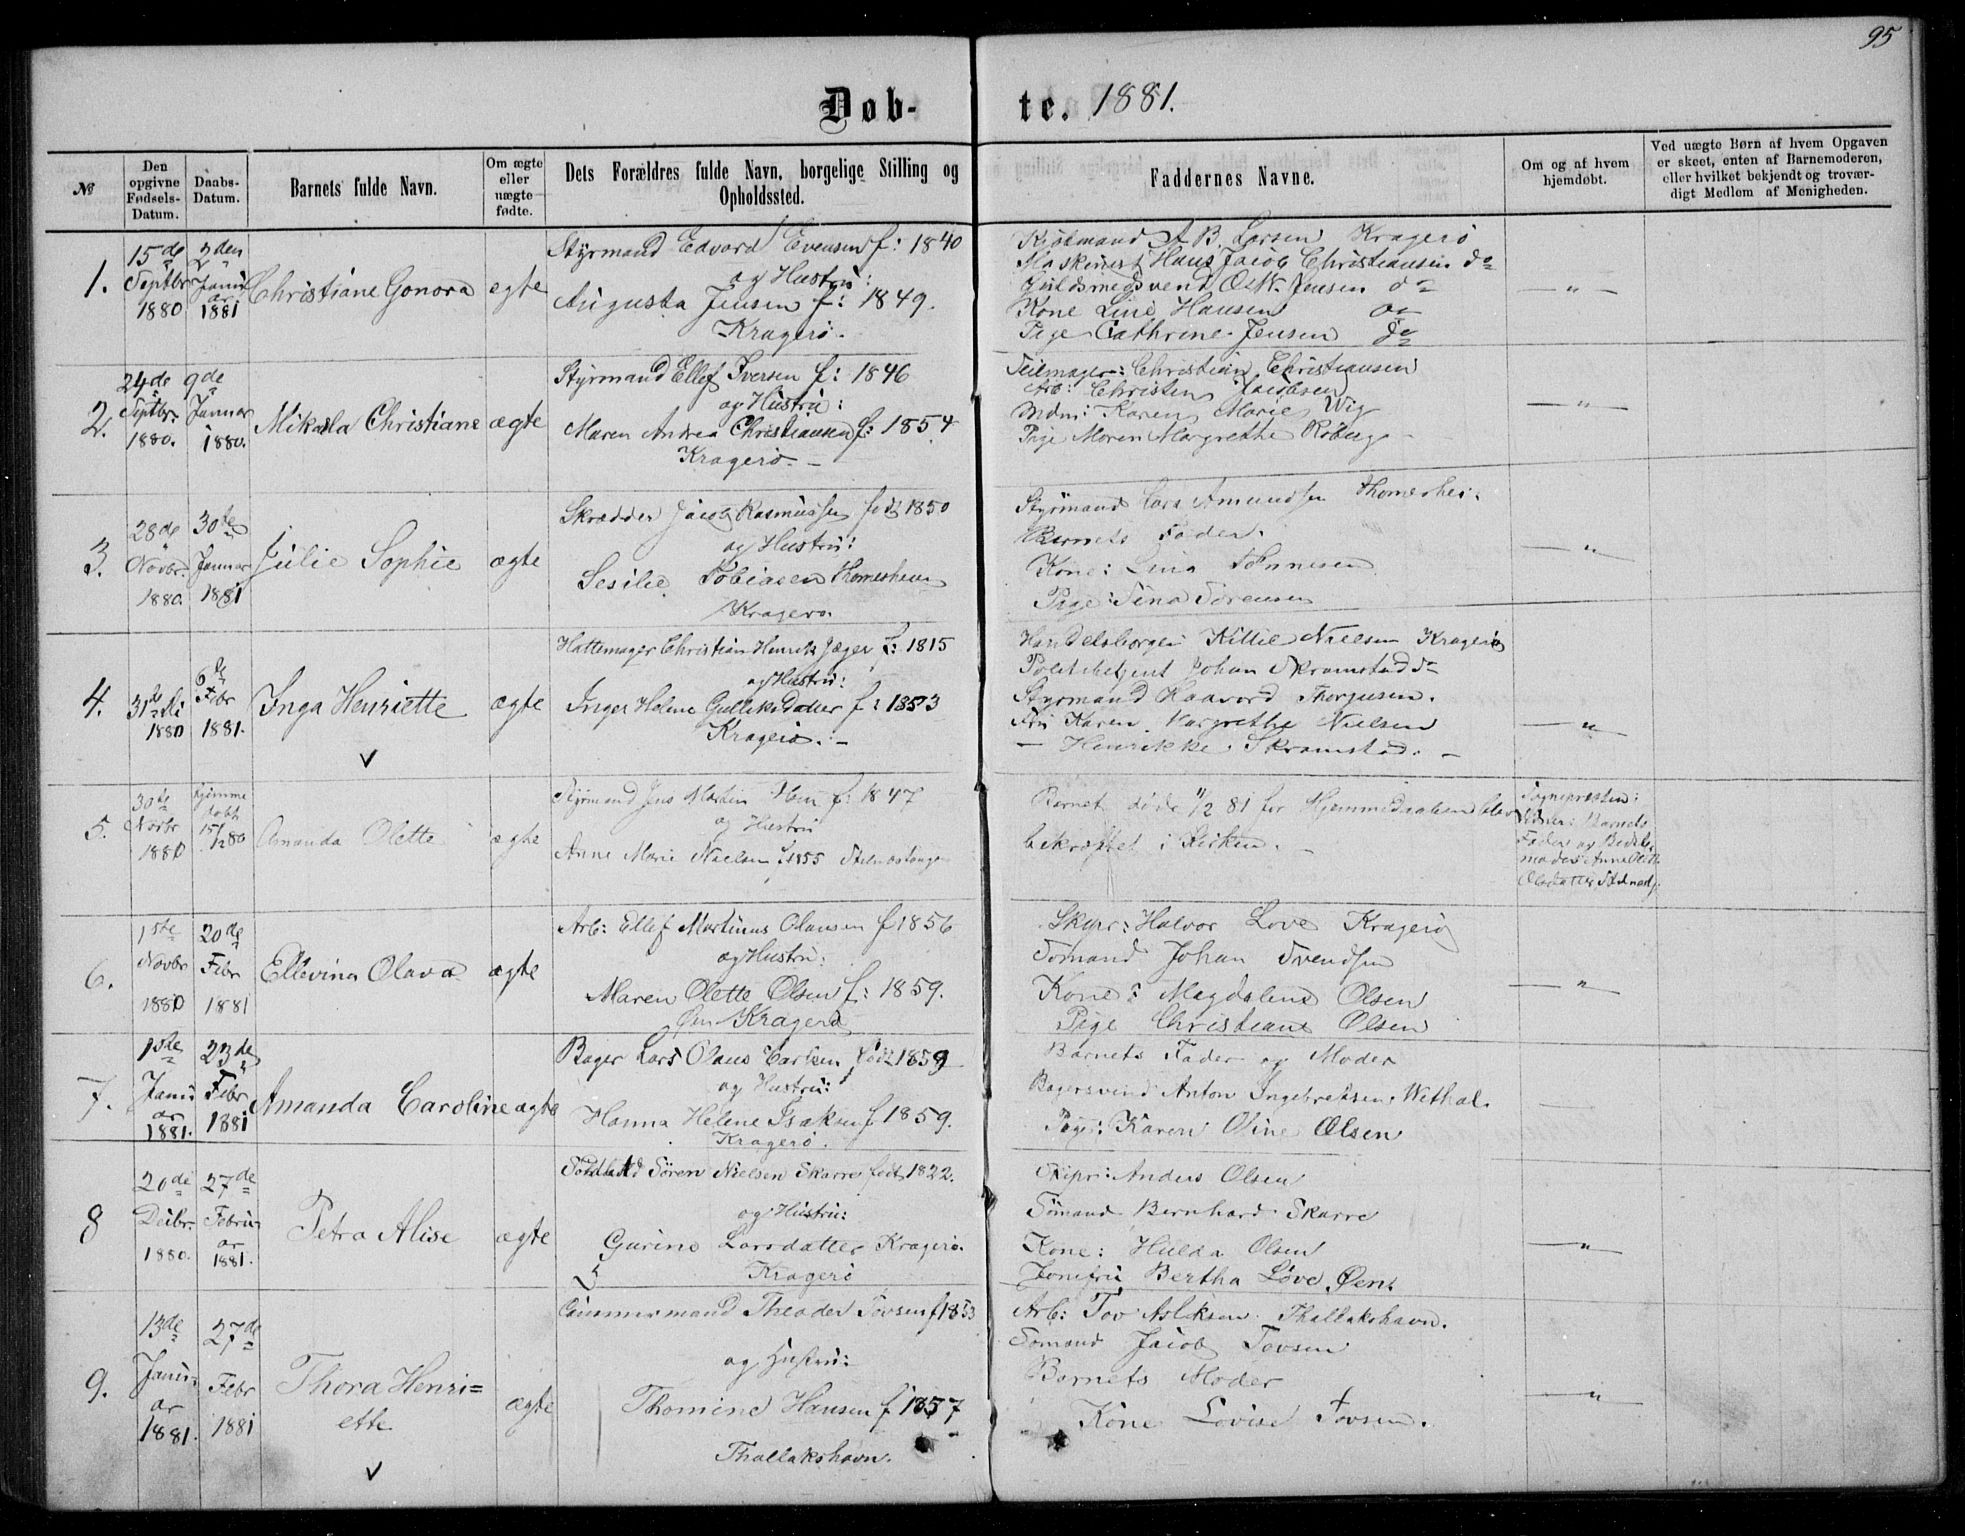 95
Døb-te. 1881.
№
Den opgivne Fødsels-Datum.
Daabs-Datum.
Barnets fulde Navn.
Om ægte eller uægte fødte.
Dets Forældres fulde Navn, borgelige Stilling og Opholdssted.
Faddernes Navne.
Om og af hvem hjemdøbt.
Ved uægte Børn af hvem Opgaven er skeet, enten af Barnemoderen, eller hvilket bekjendt og troværdigt Medlem af Menigheden.
1.
15de Septbr 1880
2den Januar 1881
Christiane Gonora
ægte
Styrmand Edvard Evensen f: 1840
og Hustru:
Augusta Jensen f: 1849.
Kragerö.
Kjöbmand A B. Larsen Kragerö
Maskinist Hans Jacob Christiansen do
Guldsmedsvend O. W. Jensen do
Kone Line Hansen do
Pige Cathrine Jensen do
— " —
2.
24de Septbr. 1880.
9de Januar 1880.
Mikala Christiane
ægte
Styrmand Ellef Iversen f: 1846
og Hustru:
Maren Andrea Christiansen f: 1854
Kragerö. —
Seilmager: Christian Christiansen
Arb: Christen Jacobsen
Mdm: Karen Marie Wig
Pige Maren Margrethe Röberg
— " —
3.
28de Novbr. 1880.
30te Januar 1881
Julie Sophie
ægte
Skrædder Jacob Rasmussen född 1850
og Hustru:
Sesilie Tobiasen Thomeshei
Kragerö
Styrmand Lars Amundsen Thomeshei.
Barnets Fader.
Kone: Lina Tönnesen
Pige: Tina Sörensen
— " —
4.
31te 1880
6de Febr 1881.
Inga Henriette
ægte
v
Hattemager Christian Henrik Jæger f: 1815
og Hustru:
Inger Helene Gulliksdatter f: 1853
Kragerö. —
Handelsborger Kittil Nielsen Kragerö
Politibetjent Johan Skramstad do
Styrmand Haavord Thorgusen.
Fru Karen Margrethe Nielsen
— Henrikke Skramstad. —
— " —
5.
30te Novbr 1880
Hjemme döbt 15/12 80
Amanda Olette
ægte
Styrmand Jens Martin f: 1847
og Hustru
Anne Marie Nielsen f 1855
Barnet döde 11/2 81 för Hjemmedaaben blev
bekræftet i Kirken. —
Sognepresten:
Barnets
Fader og Bedste-
moder Anne Olette
Olsdatter
6.
1ste Novbr 1880
20de Febr 1881
Ellevina Olava
ægte
Arb: Ellef Martinus Olausen f 1856
og Hustru:
Maren Olette Olsen f: 1859.
Öen Kragerö
Skpr: Halvor Love Kragerö
Sömand Johan Svendsen
Kone: Magdalene Olsen
Pige Christiane Olsen
— " —
7.
1ste Januar 1881.
23de Febr 1881
Amanda Caroline
ægte
Bager Lars Olaus Carlsen född 1859
og Hustru:
Hanna Helene Isaksen f 1859.
Kragerö.
Barnets Fader og Moder
Bagersvend Anton Ingebretsen Wethal.
Pige: Karen Oline Olsen
8
20de Decbr. 1880.
27de Februar 1881.
Petra Alise
ægte
Sören Nielsen Skarre født 1822.
og Hustru:
Gurine Larsdatter Kragerö.
Kragerö
Skipr: Anders Olsen
Sömand Bernhard Skarre
Kone: Hulda Olsen
Jomfru Bertha Löve, Öen.
— " —
9.
13de Januar 1881.
27de Febr 1881
Thora Henri=
ette
ægte
v
Tömmermand Theodor Tovsen f 1853
og Hustru:
Thomine Hansen f 1857
Thallakshavn.
Arb: Tov Aslaksen Thallakshavn.
Sömand Jacob Tovsen
Barnets Moder
Kone Lovise Tovsen.
— " —